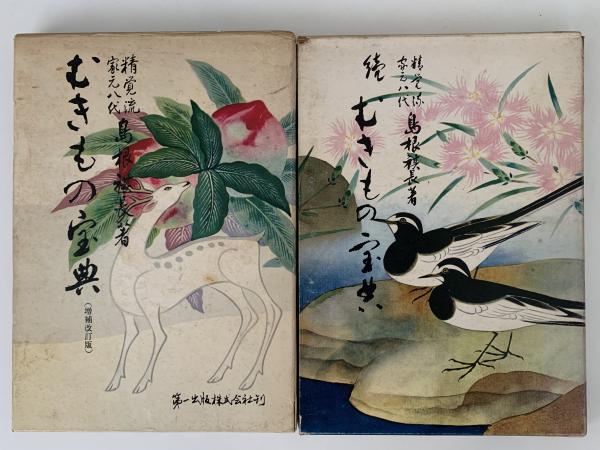 精覚流
家元八代
島根秧長著
むきもの宝典
(増補改訂版)
第一出版株式会社刊
精覚流
家元八代
島根秧長著
続 むきもの宝典